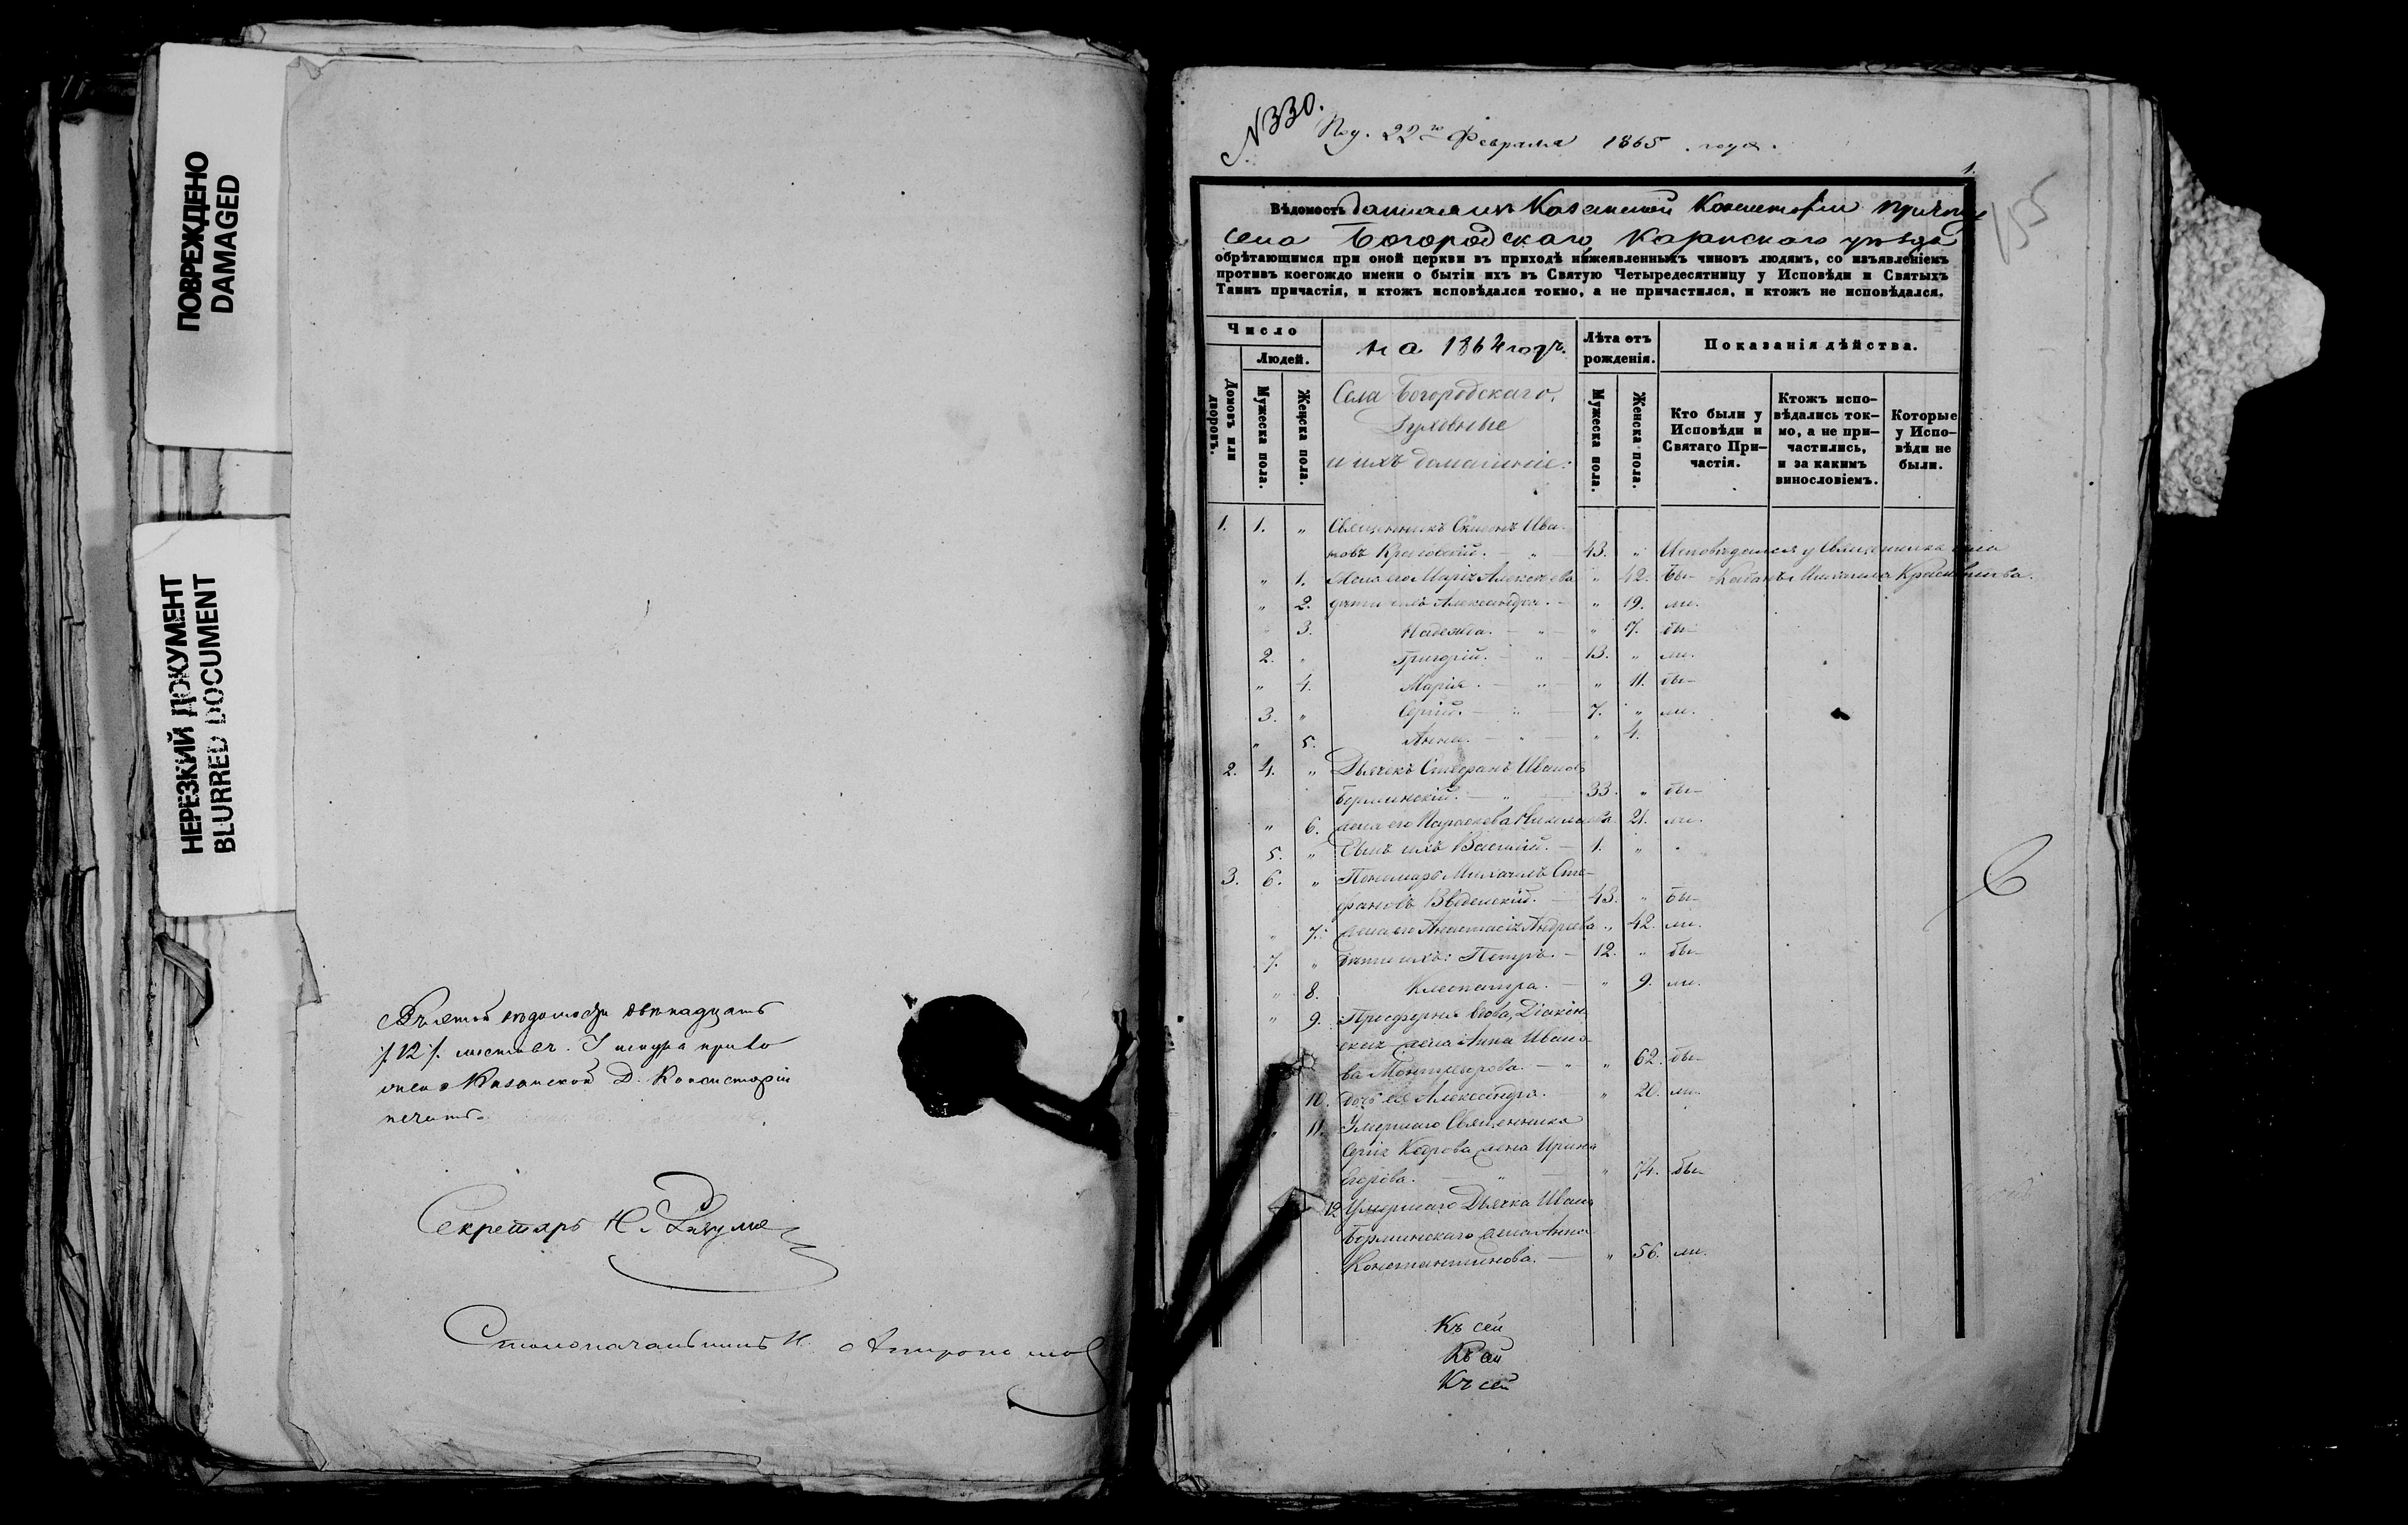 ПОВРЕЖДЕНО
DAMAGED
НЕРЕЗКИЙ ДОКУМЕНТ
BLURRED DOCUMENT
двенадцать
/12/ листовъ.
Казанской Д. Консисторіи
печать.
Секретарь Н.
Столоначальникъ
№ 330.
Пол. 22го Февраля 1865 года.
1.
155
Вѣдомость данная изъ Казанской Консисторіи причту
села Богородскаго, Казанскаго уѣзда
обрѣтающимся при оной церкви въ приходѣ нижеявленныхъ чиновъ людямъ, со изъявленіемъ
противъ коегождо имени о бытіи ихъ въ Святую Четыредесятницу у Исповѣди и Святыхъ
Таинъ причастія, и ктожъ исповѣдался токмо, а не причастился, и ктожъ не исповѣдался.
Число
Людей.
Домовъ или дворовъ.
Мужеска пола.
Женска пола.
на 1864 годъ.
Села Богородскаго.
Духовные
и ихъ домашніе:
Лѣта отъ рожденія.
Мужеска пола.
Женска пола.
Показанія дѣйства.
Кто были у Исповѣди и Святаго Причастія.
Ктожъ исповѣдались токмо, а не причастились, и за какимъ винословіемъ.
Которые у Исповѣди не были.
1. 1. „ Священникъ Симеонъ Ива-
новъ — „ — 43. „ Исповѣдался у Священника села
„ 1. Жена его Марія Алексѣева „ 42. бы- Михаила
„ 2. дѣти ихъ Александра. — „ 19. ли.
3. Надежда. — „ — „ 17. бы-
2. „ Григорій. — „ — 13. „ ли.
„ 4. Марія. — „ — „ 11. бы-
3. „ Сергій. — „ — 7. „ ли.
„ 5. Анна. — „ — „ 4.
2. 4. „ Дьячекъ Стефанъ Ивановъ
Борминскій. — „ — 33. „ бы-
„ 6. жена его Параскева Николаева. 21. ли.
5. „ Сынъ ихъ Василій. — 1. „
3. 6. „ Пономарь Михаилъ Сте-
фановъ Введенскій. — 43. „ бы-
„ 7. жена его Анастасія Андреева „ 42. ли.
7. „ дѣти ихъ: Петръ. — 12. „ бы-
„ 8. Клеопатра. — „ 9. ли.
„ 9. Просфорня вдова, Діакон-
ская жена Анна Ивано-
ва — „ „ 62. бы-
10. дочь ея Александра. — „ 20. ли.
„ 11. Умершаго Священника
Сергія Кедрова жена Ирина
Егорова. — „ — „ 74. бы-
12. Умершаго Дьячка Ивана
Борминскаго жена Анна
Константинова. — „ 56. ли.
Къ сей
Къ сей
Къ сей